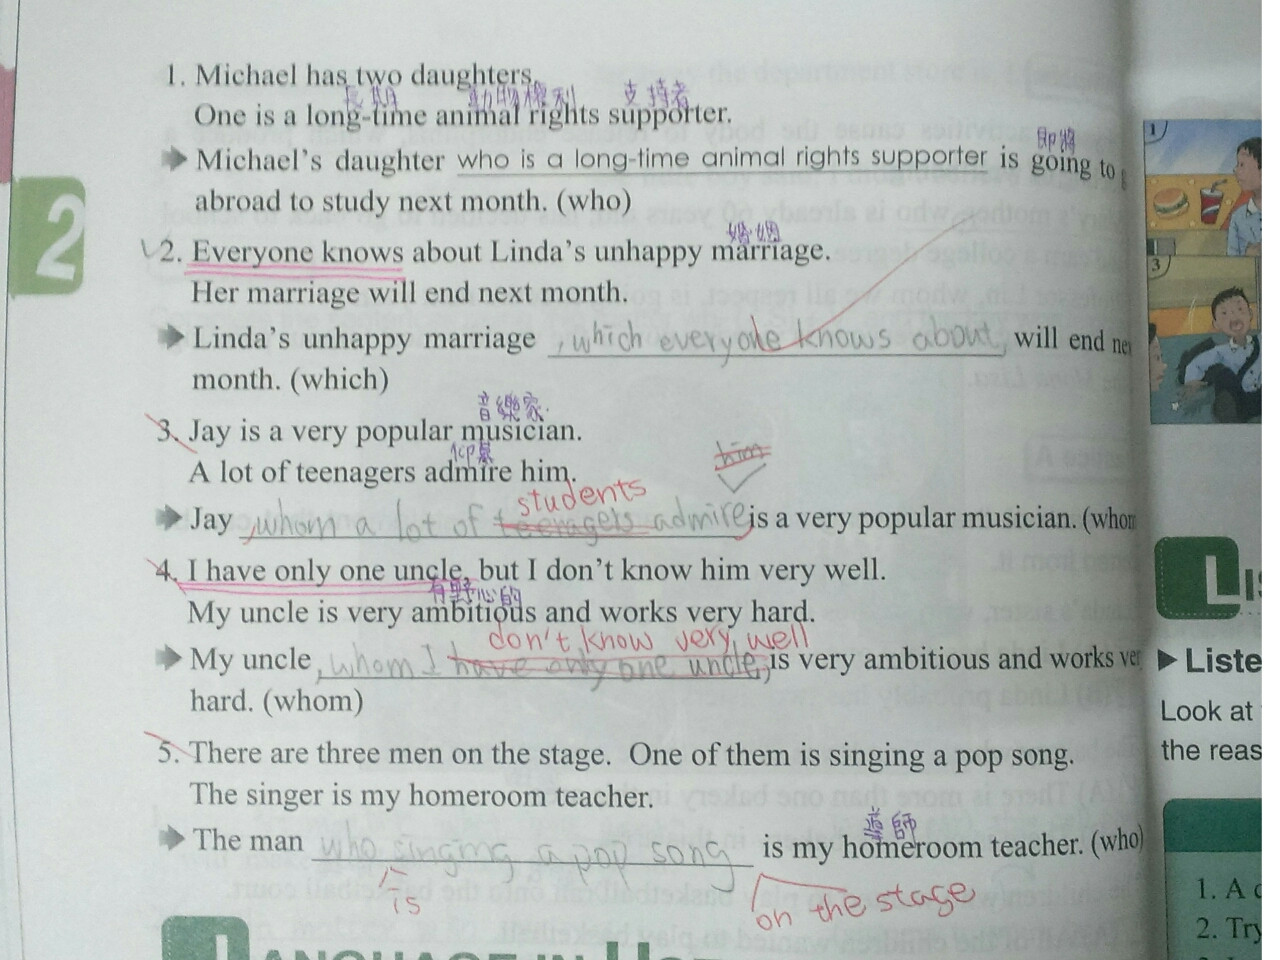 1. Michael has two daughters.
長期 動物權利 支持者
One is a long-time animal rights supporter.
即將
Michael's daughter who is a long-time animal rights supporter is going to
abroad to study next month. (who)
婚姻
2. Everyone knows about Linda's unhappy marriage.
Her marriage will end next month.
Linda's unhappy marriage , which everyone knows about, will end ne
month. (which)
音樂家
3. Jay is a very popular musician.
仰慕
A lot of teenagers admire him.
him
students
Jay , whom a lot of teenagers admire, is a very popular musician. (whom
4. I have only one uncle, but I don't know him very well.
有野心的
My uncle is very ambitious and works very hard.
don't know very well
My uncle , whom I have only one uncle, is very ambitious and works ver
hard. (whom)
5. There are three men on the stage. One of them is singing a pop song.
The singer is my homeroom teacher.
導師
The man who singing a pop song is my homeroom teacher. (who)
is
on the stage
LANGUAGE IN USE
2
1
3
LIS
Liste
Look at
the reas
1. A c
2. Try